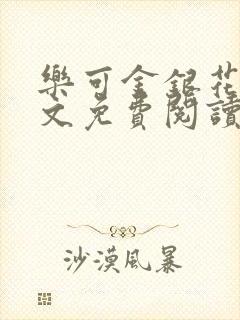 樂可金銀花
文免費閱讀
沙漠風暴